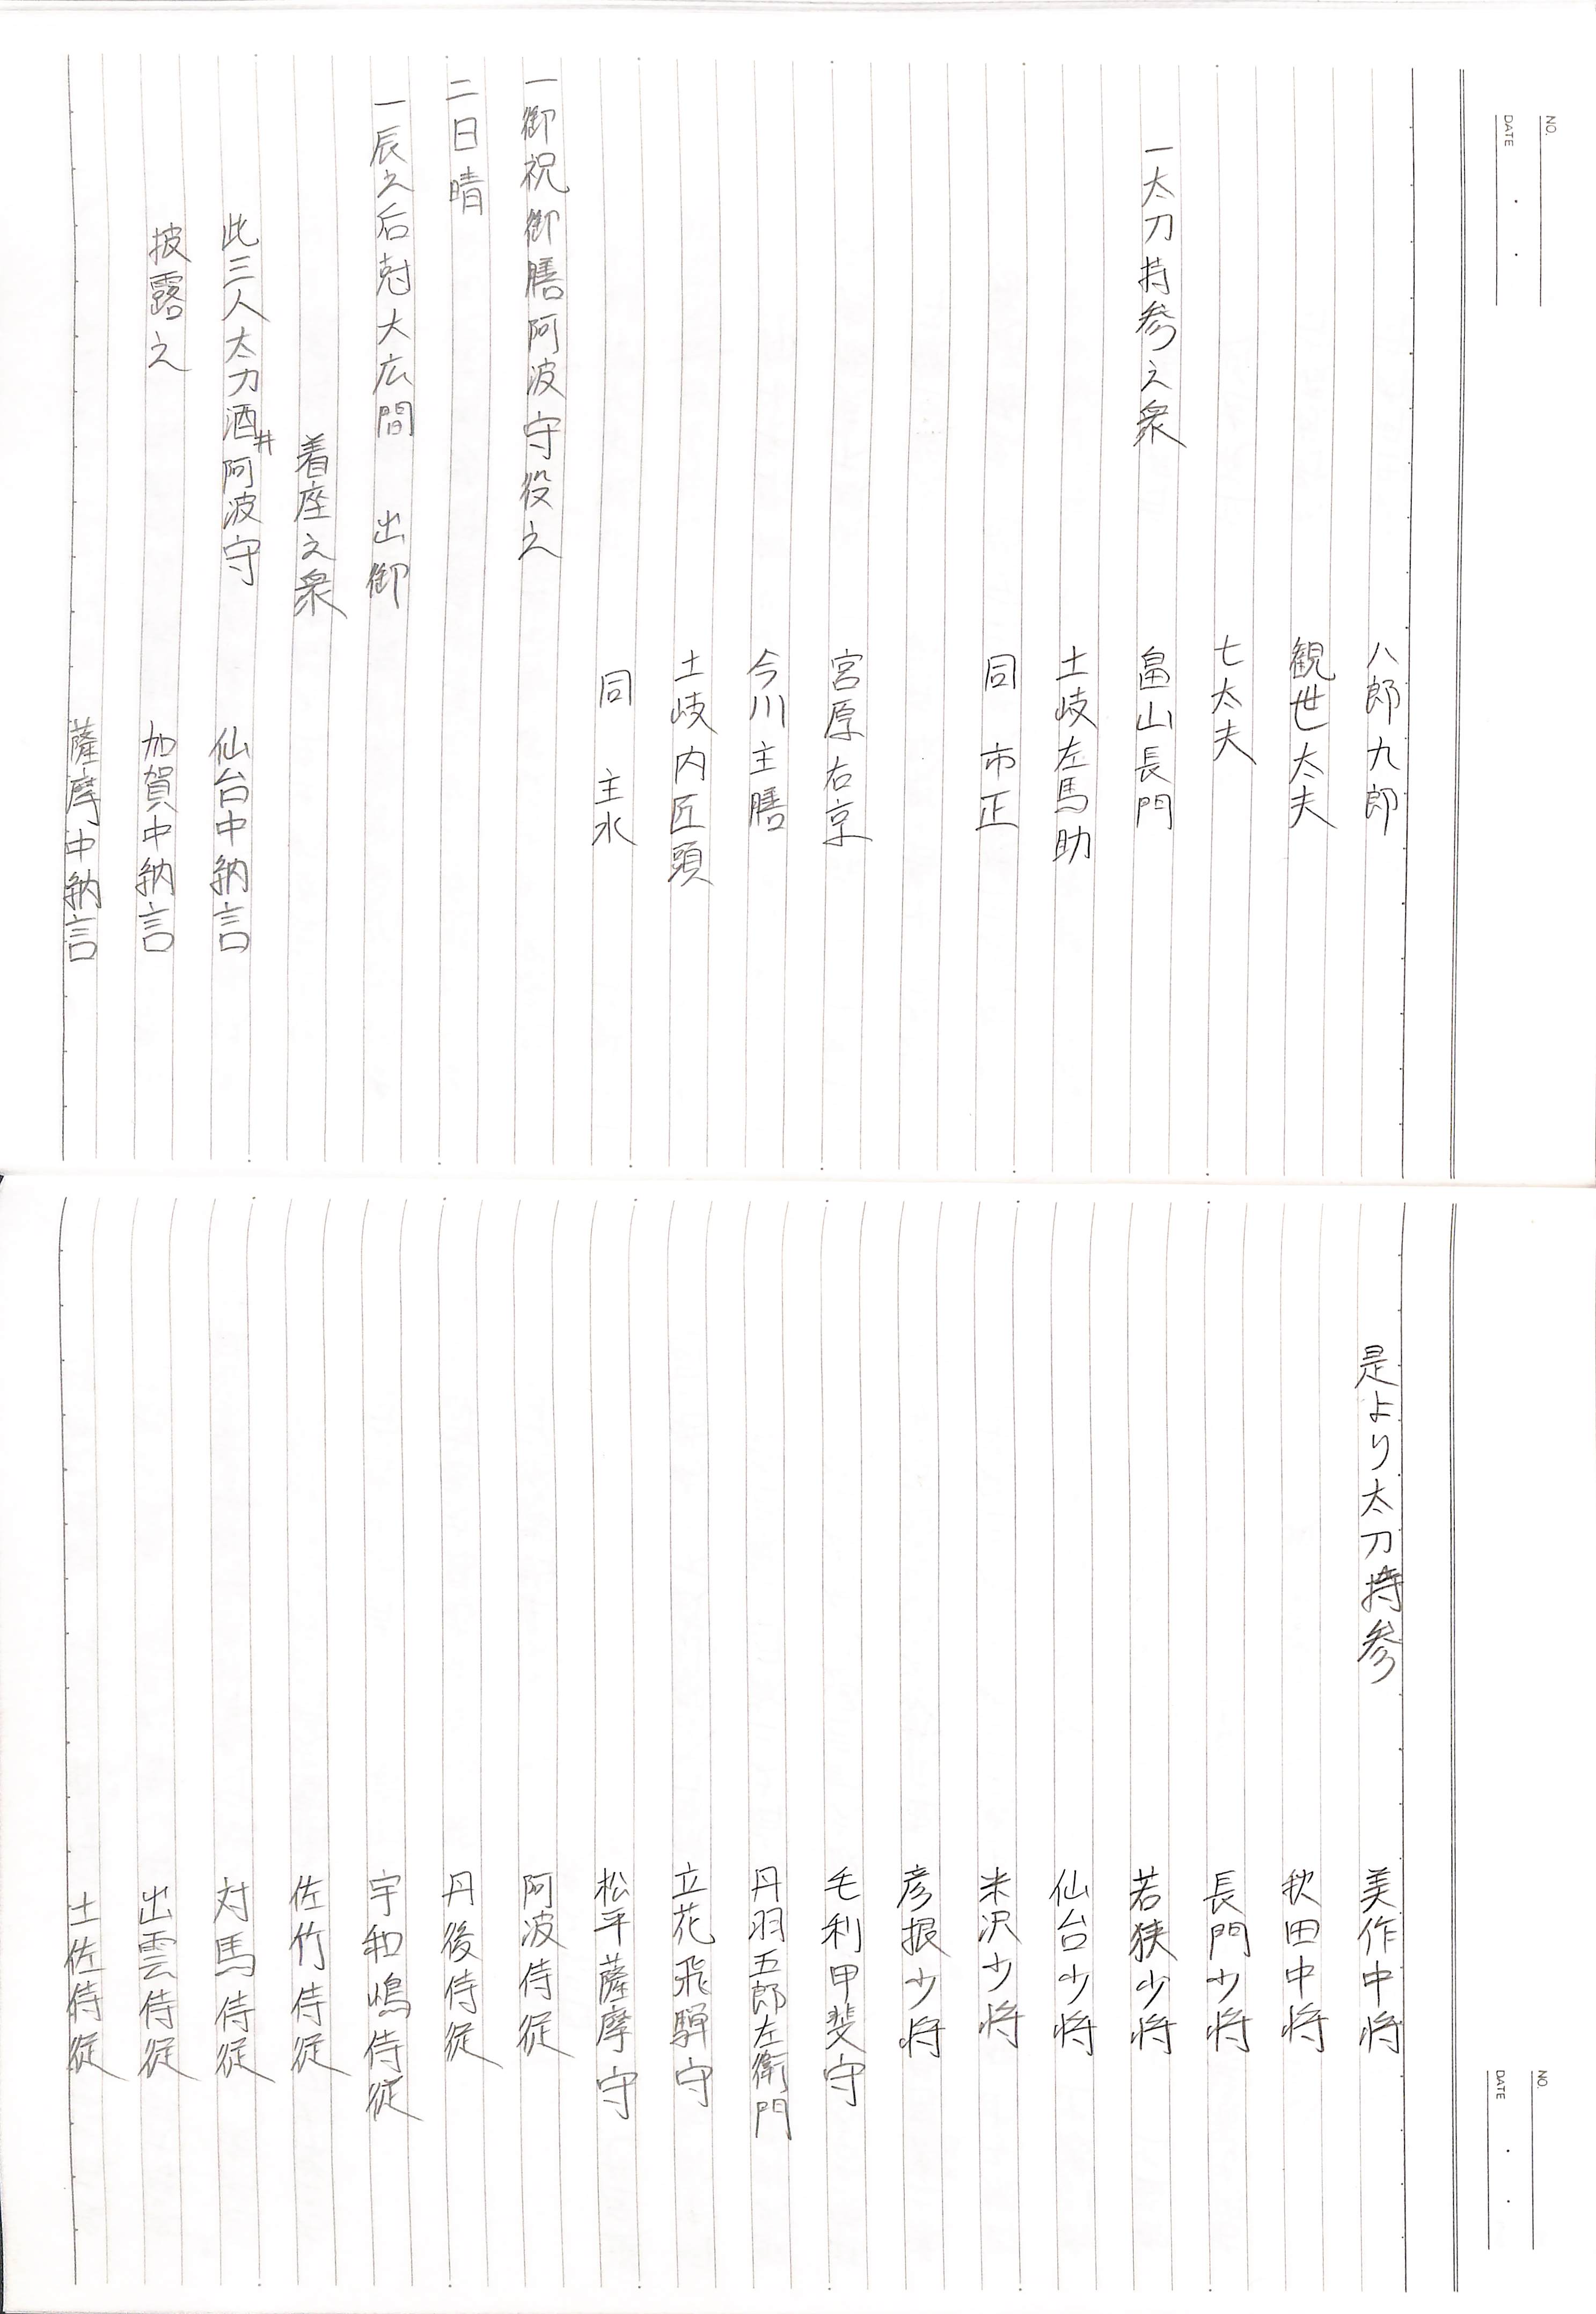 NO.
DATE
八郎九郎
観世太夫
七太夫
一太刀持参之衆 畠山長門
土岐左馬助
同 市正
宮原右京
今川主膳
土岐内匠頭
同 主水
一御祝御膳阿波守役之
二日晴
一辰之后尅大広間 出御
着座之衆
此三人太刀酒井阿波守 仙台中納言
披露之 加賀中納言
薩摩中納言
NO.
DATE
是より太刀持参 美作中将
秋田中将
長門少将
若狭少将
仙台少将
米沢少将
彦根少将
毛利甲斐守
丹羽五郎左衛門
立花飛騨守
松平薩摩守
阿波侍従
丹後侍従
宇和嶋侍従
佐竹侍従
対馬侍従
出雲侍従
土佐侍従